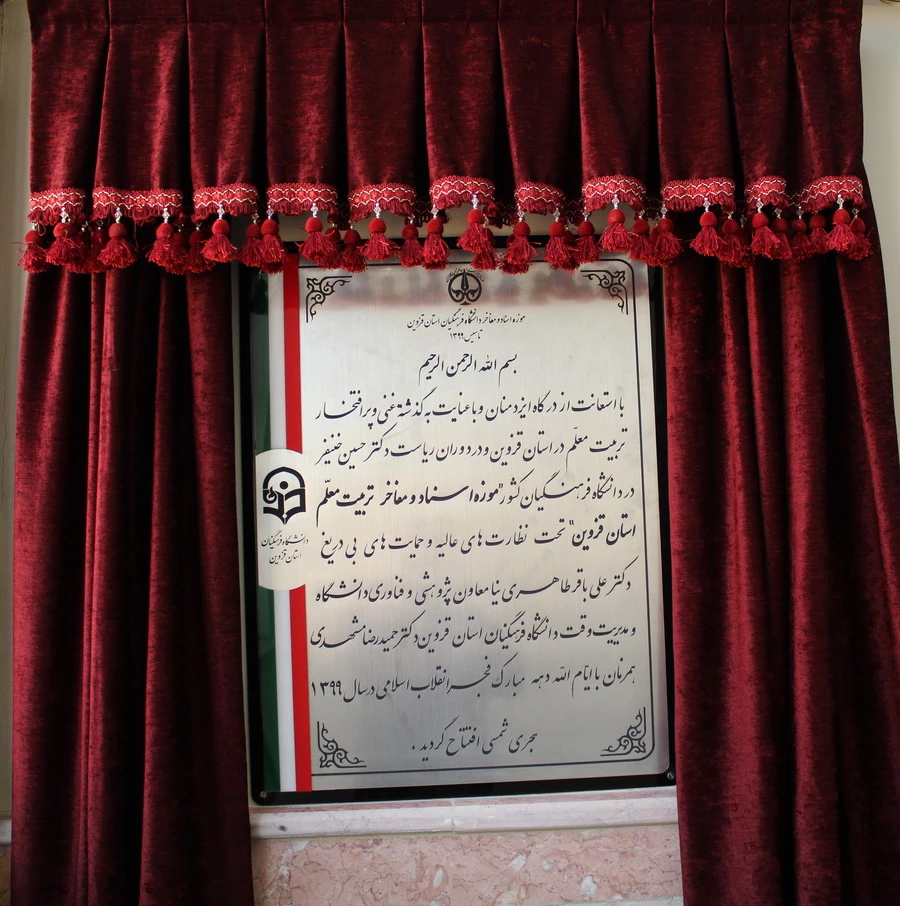 موزه اسناد و مفاخر دانشگاه فرهنگیان استان قزوین
تاسیس ۱۳۹۹
بسم الله الرحمن الرحیم
با استعانت از درگاه ایزد منان و با عنایت به گذشته غنی و پر افتخار
تربیت معلّم در استان قزوین و در دوران ریاست دکتر حسین خنیفر
در دانشگاه فرهنگیان کشور "موزه اسناد و مفاخر تربیت معلّم
استان قزوین" تحت نظارت های عالیه و حمایت های بی دریغ
دکتر علی باقر طاهری نیا معاون پژوهشی و فناوری دانشگاه
و مدیریت وقت دانشگاه فرهنگیان استان قزوین دکتر حمیدرضا مشهدی
همزمان با ایّام الله دهه مبارک فجر انقلاب اسلامی در سال ۱۳۹۹
هجری شمسی افتتاح گردید .
دانشگاه فرهنگیان
استان قزوین